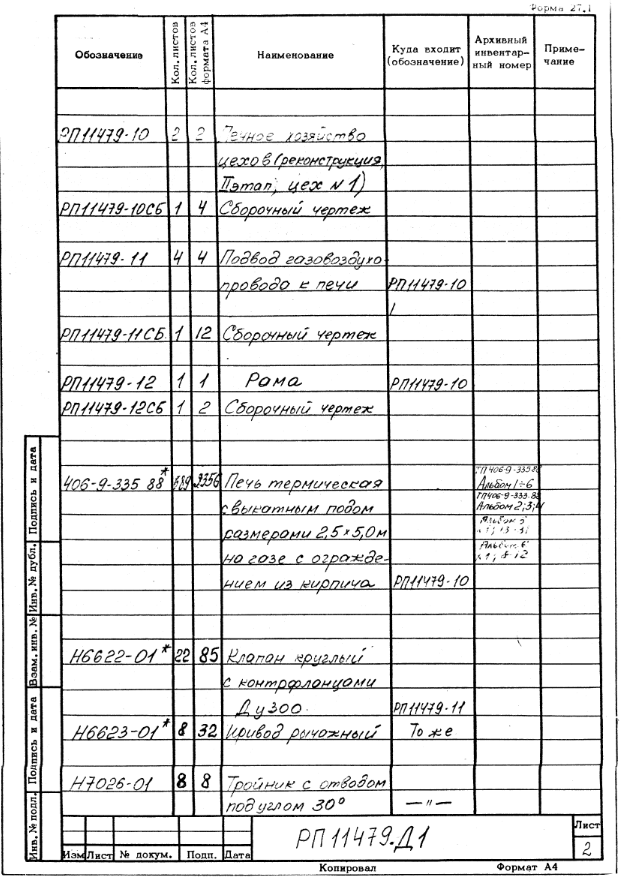 Форма 27.1
Обозначение Кол. листов Кол. листов формата А4 Наименование Куда входит (обозначение) Архивный инвентарный номер Примечание
РП11479-10 2 2 Печное хозяйство
цехов (реконструкция,
II этап, цех N 1)
РП11479-10СБ 1 4 Сборочный чертеж
РП11479-11 4 4 Подвод газовоздухо
провода к печи РП11479-10
РП11479-11СБ 1 12 Сборочный чертеж
РП11479-12 1 1 Рама РП11479-10
РП11479-12СБ 1 2 Сборочный чертеж
ТП406-9-335.88
406-9-335 88* 3356 Печь термическая Альбом 1÷6
свыкатным подом Альбом 2;3;4
размерами 2,5×5,0м Альбом 5
на газе с огражде- Альбом 6
нием из кирпича РП11479-10
Н6622-01* 22 85 Клапан круглый
с контрфланцами
Ду300 РП11479-11
Н6623-01* 8 32 Привод рычажный То же
Н7026-01 8 8 Тройник с отводом
под углом 30° —"—
Инв. № подл. Подпись и дата Взам. инв. № Инв. № дубл. Подпись и дата
РП11479.Д1
Лист
2
Изм Лист № докум. Подп. Дата
Копировал Формат А4